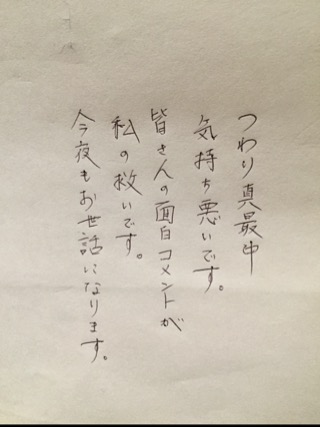 つわり真最中
気持ち悪いです。
皆さんの面白コメントが
私の救いです。
今夜もお世話になります。